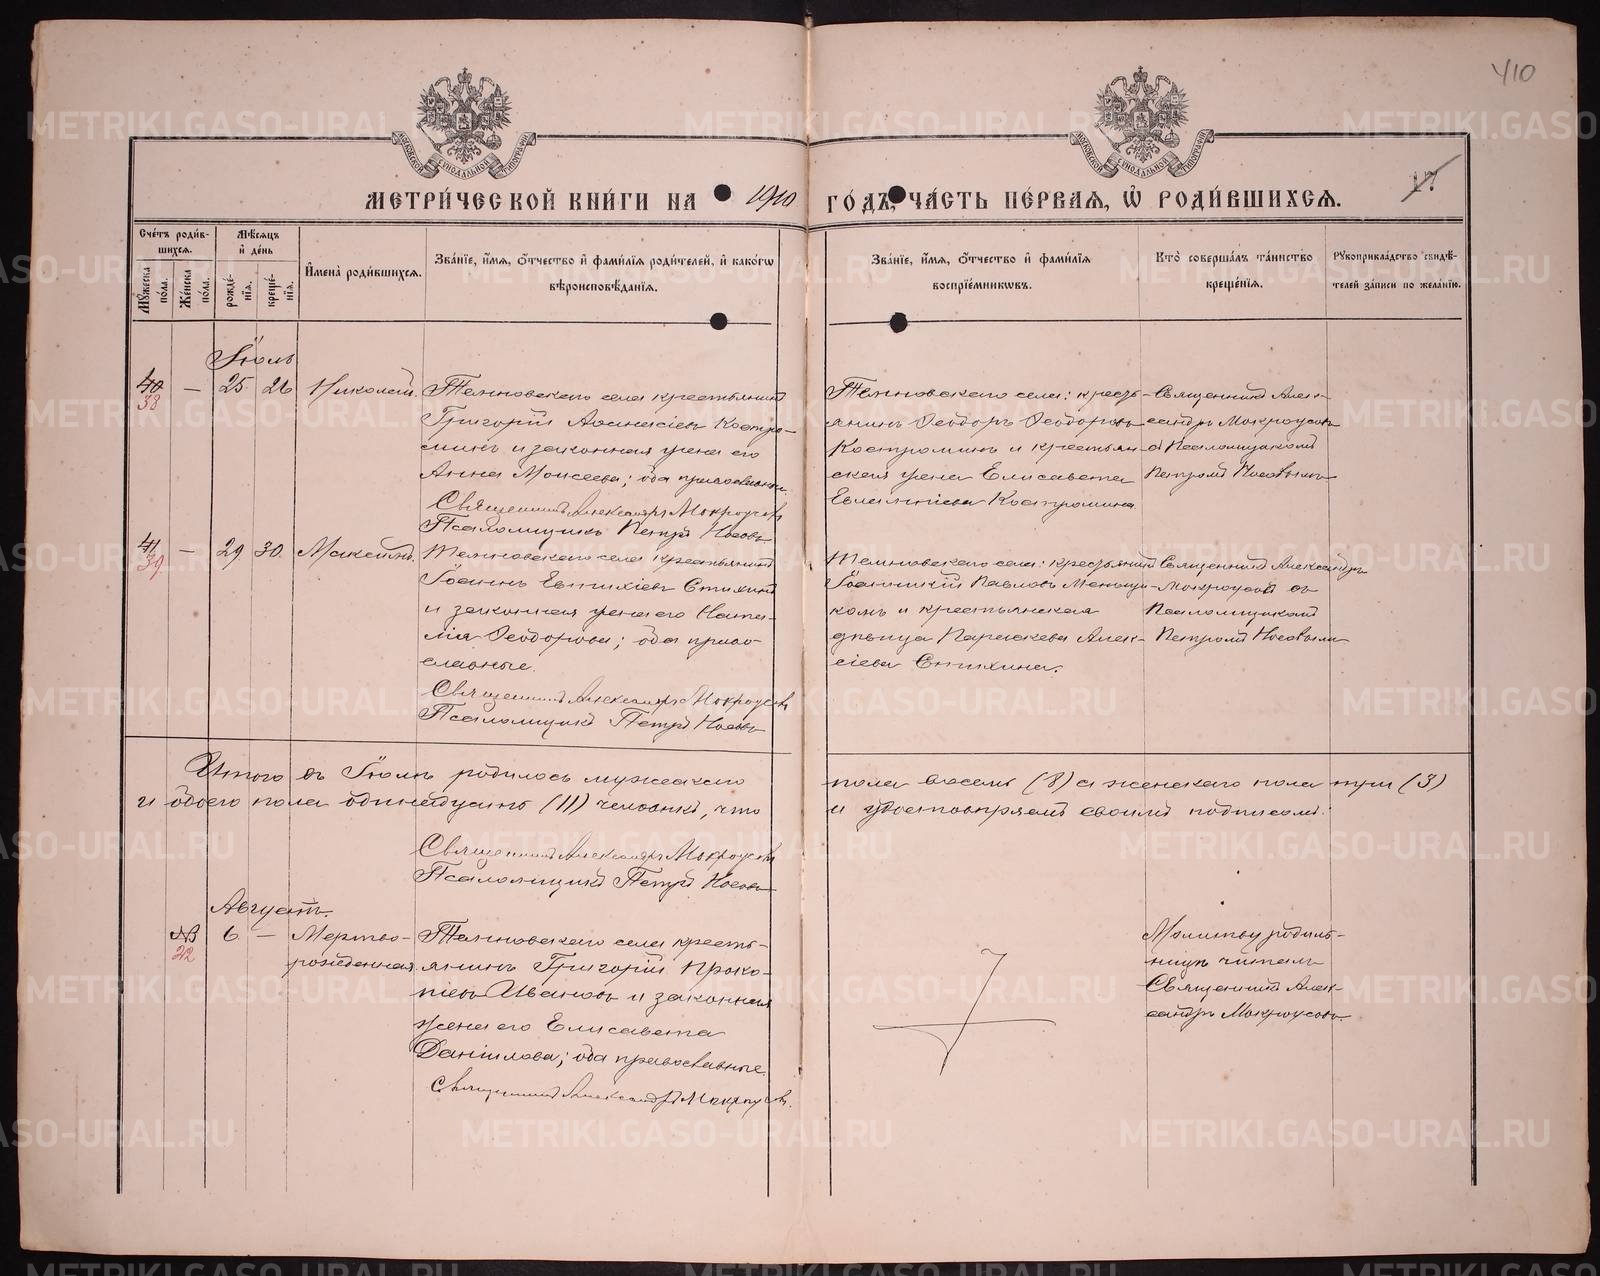 410
17
МОСКОВСКОЙ СѴНОДАЛЬНОЙ ТИПОГРАФІИ
МОСКОВСКОЙ СѴНОДАЛЬНОЙ ТИПОГРАФІИ
МЕТРИ́ЧЕСКОЙ КНИ́ГИ НА 1910 ГО́ДЪ, ЧА́СТЬ ПЕ́РВАЯ, Ѽ РОДИ́ВШИХСЯ.
Сче́тъ роди́в-
шихся.
Му́жеска
по́ла.
Же́нска
по́ла.
Мѣ́сяцъ
и҆ де́нь
рожде́-
нїя.
креще́-
нїя.
И҆мена̀ роди́вшихся.
Зва́нїе, и҆́мя, ѻ҆́тчество и҆ фами́лїя роди́телей, и҆ како́гѡ
вѣроисповѣ́данїя.
Зва́нїе, и҆́мя, ѻ҆́тчество и҆ фами́лїя
воспрїе́мниковъ.
Кто̀ соверша́лъ та́инство
креще́нїя.
Рꙋкоприкла́дство свидѣ́-
телей за́писи по жела́нїю.
Іюль
40
38
—
25
26
Николай.
Темновскаго села крестьянинъ
Григорій Аѳанасіевъ Костро-
минъ и законная жена его
Анна Моисеева; оба православные.
Священникъ Александръ Мокроусовъ
Псаломщикъ Петръ Носовъ
Темновскаго села: кресть-
янинъ Ѳеодоръ Ѳеодоровъ
Костроминъ и крестьян-
ская жена Елисавета
Евлампіева Костромина.
Священникъ Алек-
сандръ Мокроусовъ
съ Псаломщикомъ
Петромъ Носовымъ
41
39
—
29
30
Максимъ.
Темновскаго села крестьянинъ
Іоаннъ Евтихіевъ Стихинъ
и законная жена его Ната-
лія Ѳеодорова; оба право-
славные.
Священникъ Александръ Мокроусовъ
Псаломщикъ Петръ Носовъ
Темновскаго села: крестьянинъ
Павловъ
комъ и крестьянская
дѣвица Параскева Алек-
сіева Стихина.
Священникъ Александръ
Мокроусовъ съ
Псаломщикомъ
Петромъ Носовымъ
Итого въ Іюлѣ родилось мужескаго пола восемь (8) а женскаго пола три (3)
и обоего пола одинадцать (11) человѣкъ, что и удостовѣряемъ своимъ подписомъ:
Священникъ Александръ Мокроусовъ
Псаломщикъ Петръ Носовъ
Августъ.
22
6
—
Мертво-
рожденная.
Темновскаго села кресть-
янинъ Григорій Проко-
піевъ Ивановъ и законная
жена его Елисавета
Даніилова; оба православные.
Священникъ Александръ Мокроусовъ.
Молитву родиль-
ницѣ читалъ
Священникъ Алек-
сандръ Мокроусовъ.
METRIKI.GASO-URAL.RU